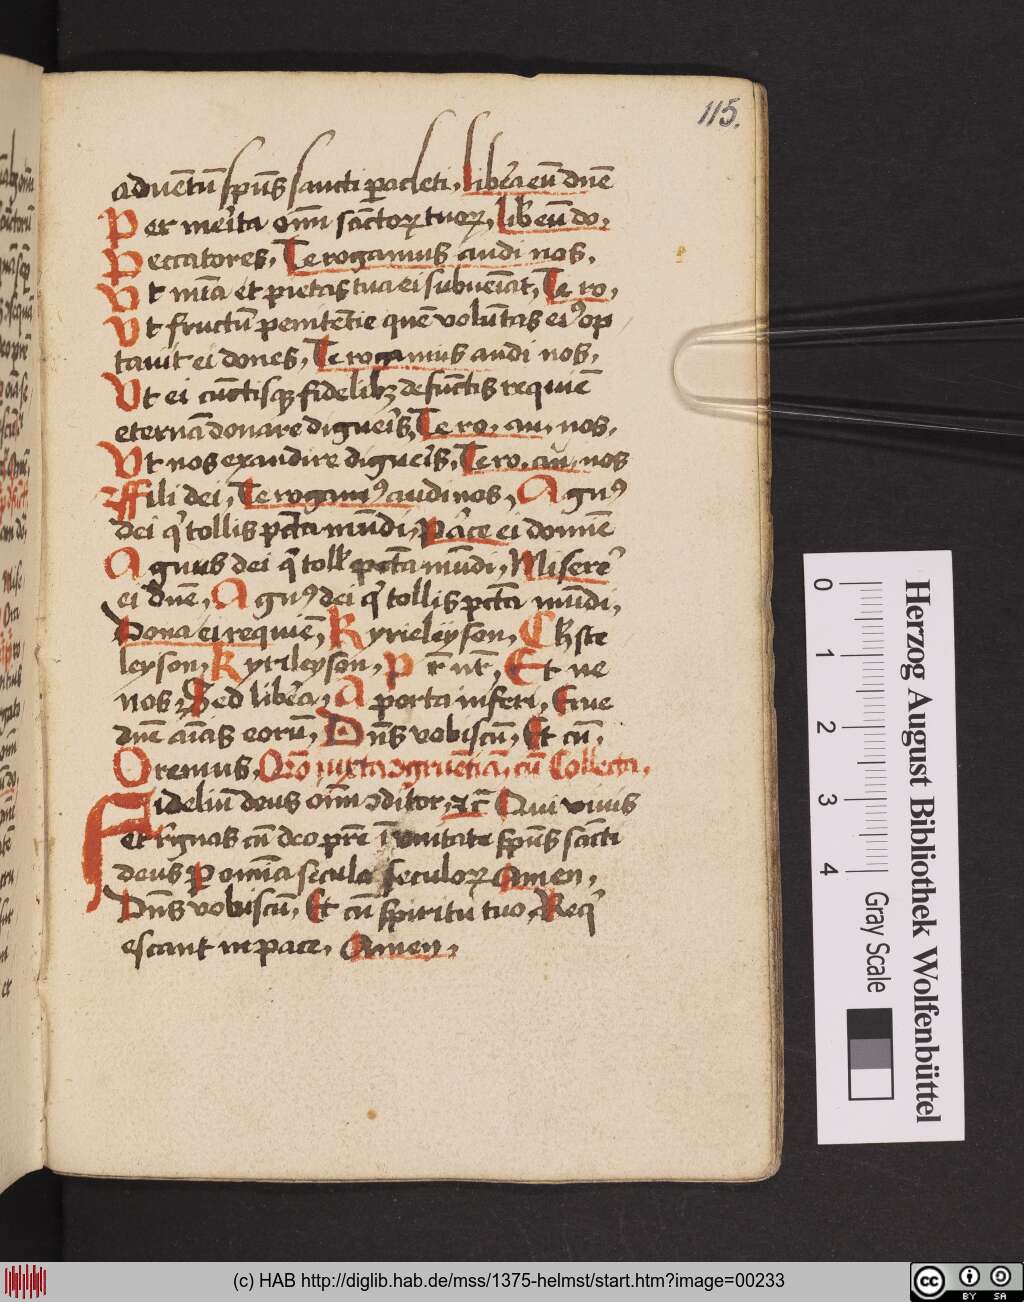 115.
aduētū spūs sancti paracleti. libera eū dnē
Per merita oīm sanctoꝝ tuoꝝ. lib eū do.
Peccatores. Te rogamus audi nos.
Vt mīa et pietas tua ei subueniat, Te ro.
Vt fructū penitētie quē volūtas eiꝰ op
tauit ei dones. Te rogamus audi nos.
Vt ei cūctisqꝫ fidelibꝫ defūctis requiē
eternā donare digneris, Te ro. au. nos.
Vt nos exaudire digneris. Te ro. au. nos
Fili dei. Te rogamꝰ audi nos, Agnꝰ
dei q tollis pctā mūdi, Parce ei domine
Agnus dei q toll pctā mūdi, Miserere
ei dnē, Agnꝰ dei q tollis pctā mūdi,
Dona ei requiē, Kyrieleyson, Chʳste
leyson. Kyrileyson. Pr nr, Et ne
nos, Sed libera, A porta inferi, Erue
dnē aīas eorū, Dns vobiscū, Et cū.
Oremus, Orō iuxta ꝯgruētiā cū Collecta.
Fideliū deus oīm ꝯditor, ⁊c Qui viuis
et regnas cū deo pre ī vnitate spūs scti
deus p omīa secula seculoꝝ Amen.
Dns vobiscū, Et cū spiritu tuo, Requi
escant in pace, Amen.
0 1 2 3 4
Gray Scale
Herzog August Bibliothek Wolfenbüttel
(c) HAB http://diglib.hab.de/mss/1375-helmst/start.htm?image=00233
cc BY SA